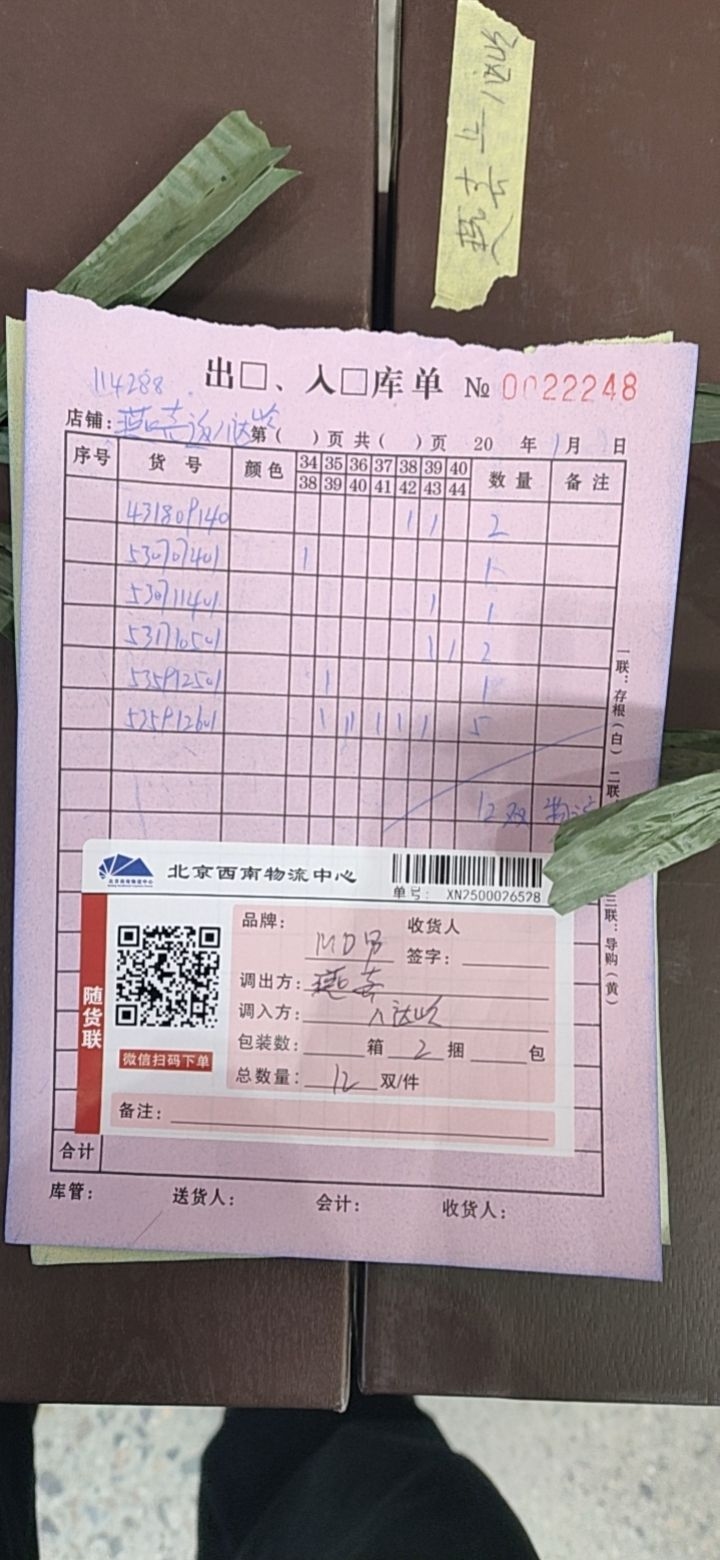 燕莎与八达岭
114288
出□、入□库单 № 0022248
店铺: 燕莎 八达岭 第( )页 共( )页 20 年 1月 日
序号 货号 颜色 34 35 36 37 38 39 40 数量 备注
38 39 40 41 42 43 44
431809140 1 1 2
530707401 1 1
530711401 1 1
531710501 1 1 2
535912501 1 1
535912601 1 11 1 1 1 5
12双 物流
一联:存根(白) 二联
三联:导购(黄)
北京西南物流中心
单号: XN2500026528
随货联
微信扫码下单
品牌: MDB 收货人
签字:
调出方: 燕莎
调入方: 八达岭
包装数: 箱 2 捆 包
总数量: 12 双/件
备注:
合计
库管: 送货人: 会计: 收货人: